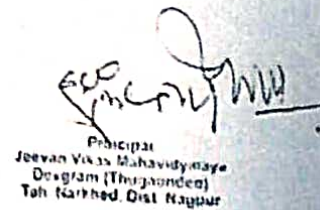 Principal
Jeevan Vikas Mahavidyalaya
Devgram (Thugaondeo)
Teh Narkhed, Dist Nagpur